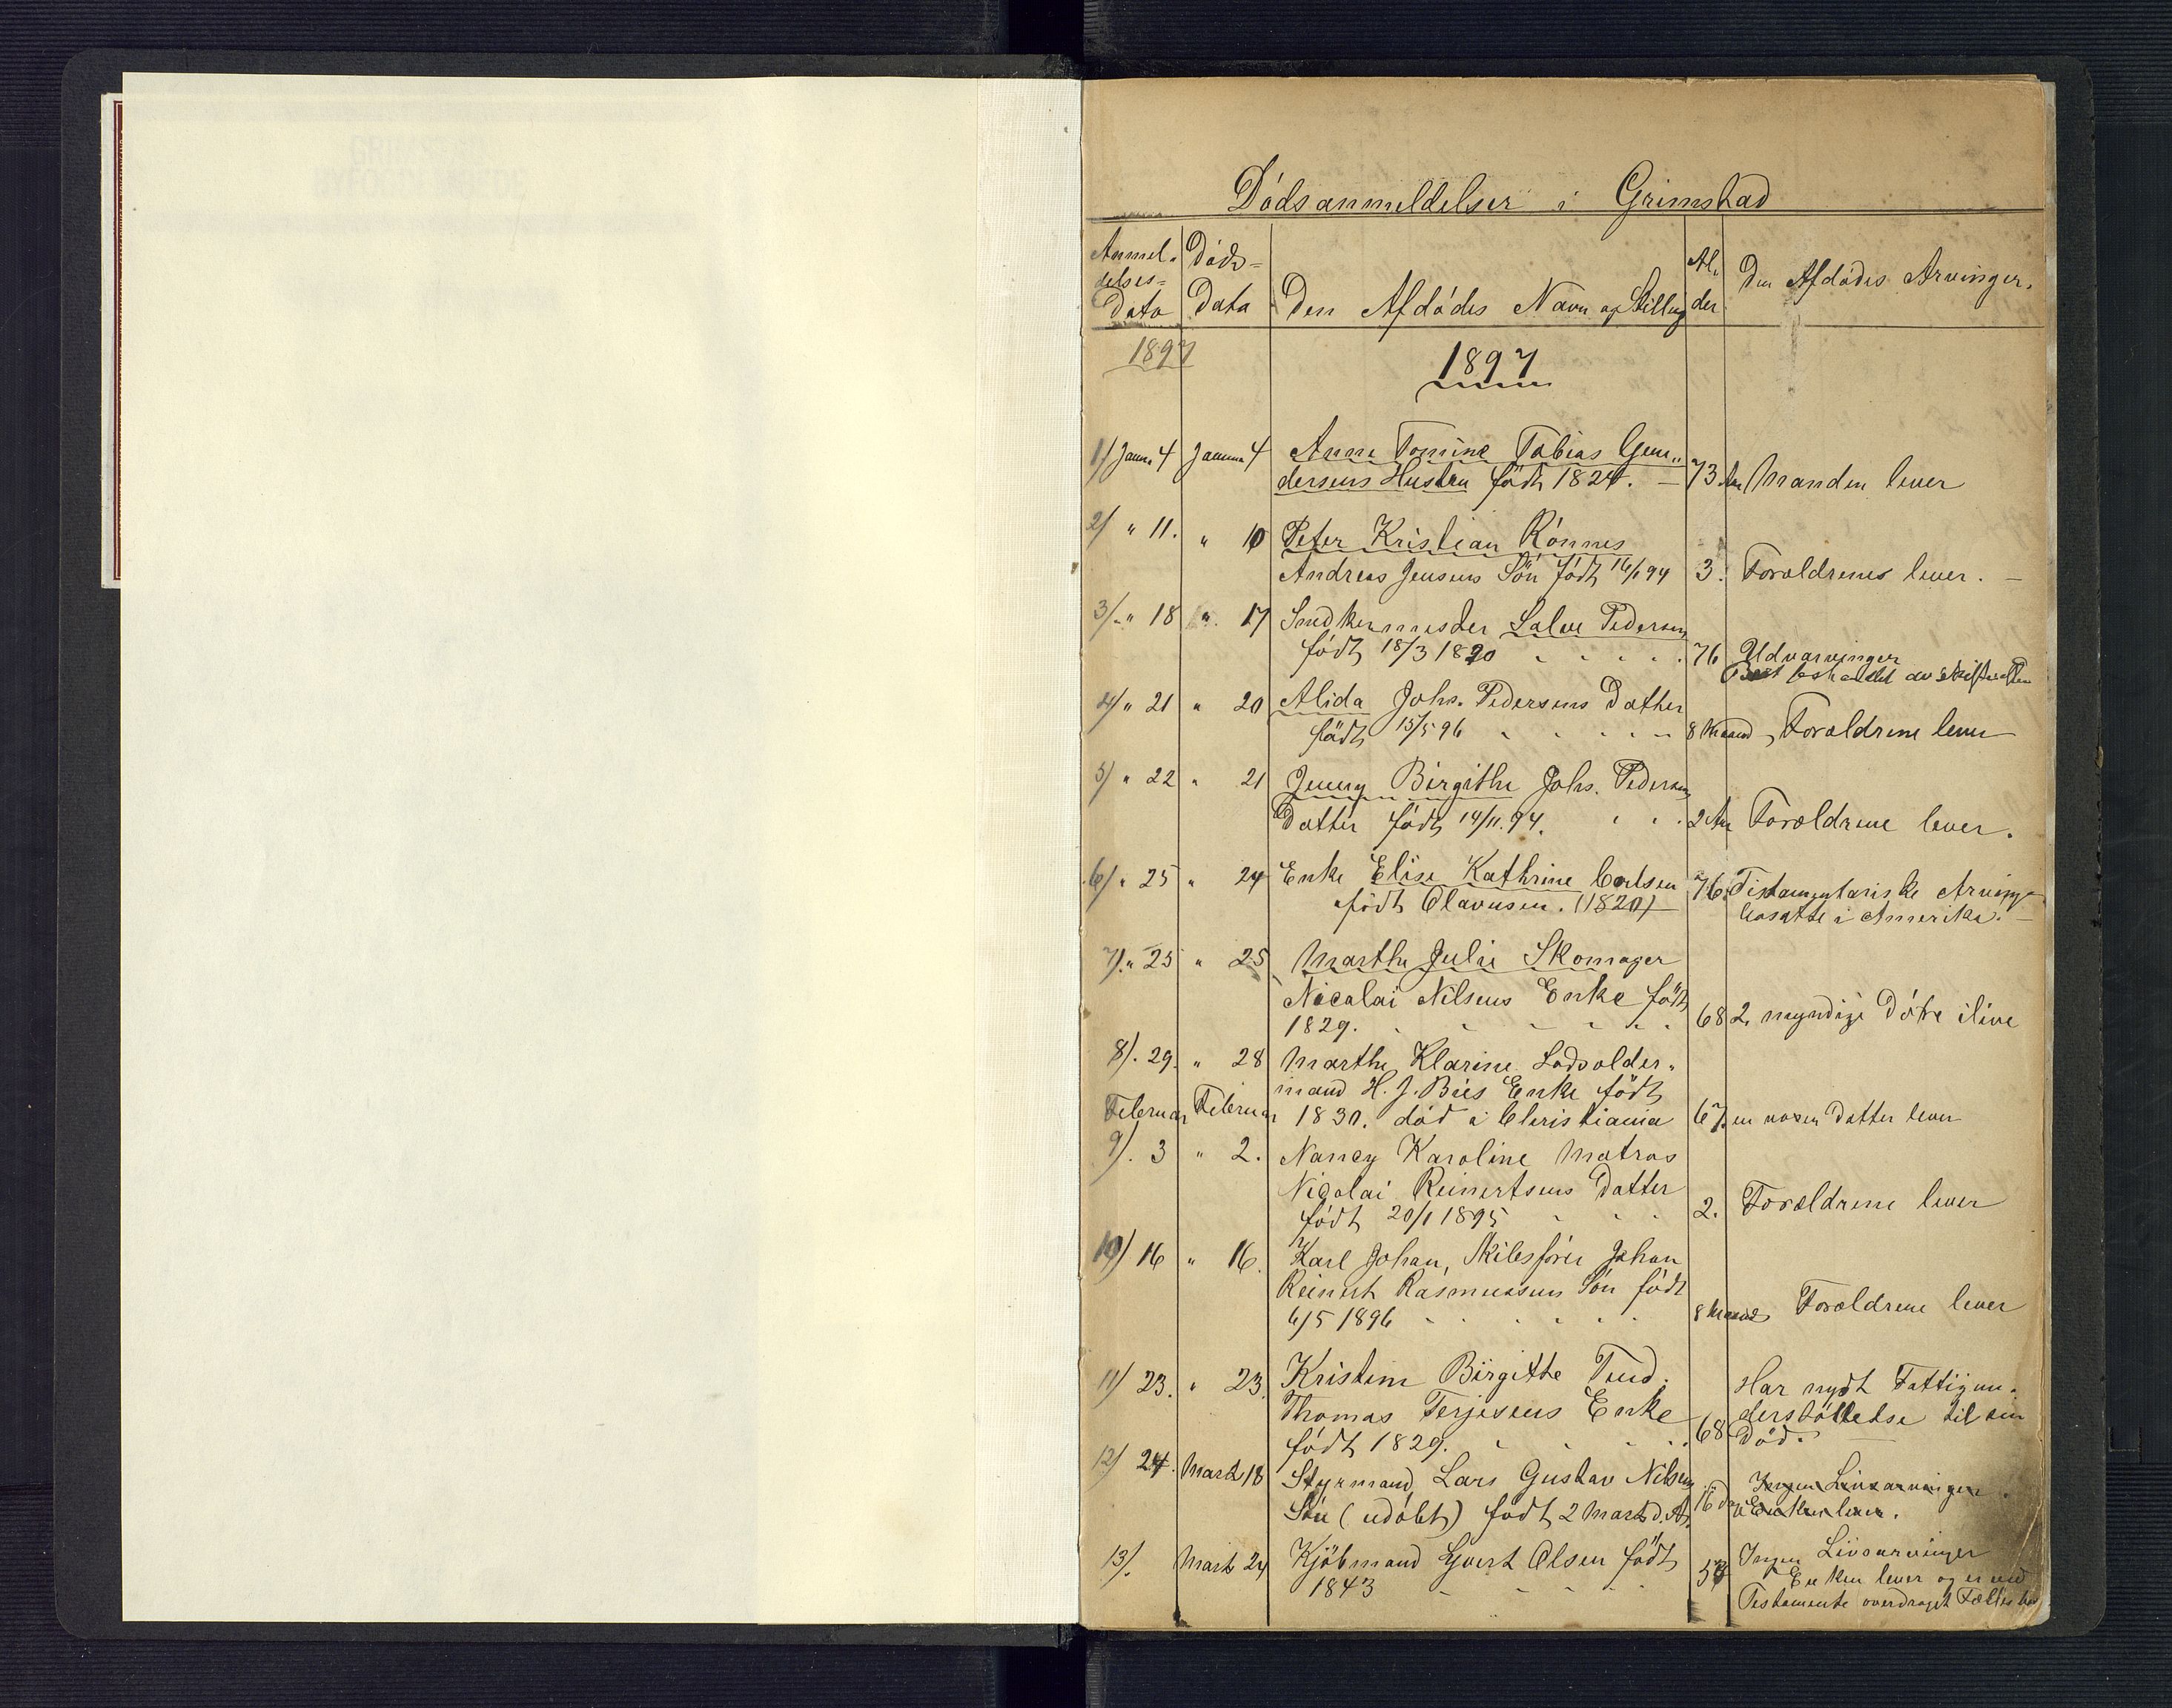 Dödsanmeldelser i Grimstad
Anmel-
delses-
Dato
Döds-
Data
Den Afdödes Navn og Stilling
Al-
der
Den Afdödes Arvinger.
1897
1897
1/ Janu. 4 Januar 4 Anne Tomine Tobias Gun-
dersens Hustru födt 1824. — 73 Aar Manden lever
2/ " 11. " 10 Peter Kristian Rönnes
Andreas Jensens Sön födt 16/1 94 3. Forældrenes lever. —
3/ " 18 " 17 Snedkermester Salve Pedersen
födt 18/3 1820 76 Udarvinger
Boet behandlet av Skifteretten
4/ " 21 " 20 Alida Johs. Pedersens Datter
födt 15/5 96 8 Maaned, Forældrene lever
5/ " 22 " 21 Jenny Birgithe Johs. Pedersens
Datter födt 14/11. 94. 2 Aar Forældrene lever.
6/ " 25 " 24 Enke Elise Kathrine Carlsen
födt Olavusen. (1820) — 76. Testamentariske Arvinger
bosatte i Amerika. —
7/. " 25 " 25 Marthe Julie Skomager
Nicolai Nilsens Enke födt
1829. 68 2 myndige Dötre ilive
8/. 29. " 28 Marthe Klarine Lodsolder-
mand H. J. Bies Enke födt
Februar Februar 1830. död i Christiania 67. en voxen Datter lever
9/. 3 " 2. Nancy Karoline Matros
Nicolai Reinertsens Datter
födt 20/1 1895 2. Forældrene lever
10/ 16 " 16. Karl Johan, Skibsförer Johan
Reinert Rasmussens Sön födt
6/5 1896 8 Maaned Forældrene lever
11/ 23. " 23. Kristine Birgithe Tind.
Thomas Terjesens Enke
födt 1829. 68
Har nydt Fattigun-
derstöttelse til sin
Död. —
12/ 24. Marts 18 Styrmand Lars Gustav Nilsens
Sön (udöbt) födt 2 Marts d. A. 16 da
Ingen Livsarvinger.
Enken lever.
13/. Marts 24 Kjöbmand Gjert Olsen födt
1843 53
Ingen Livsarvinger
Enken lever og er ved
Testamente overdraget Fællesbo